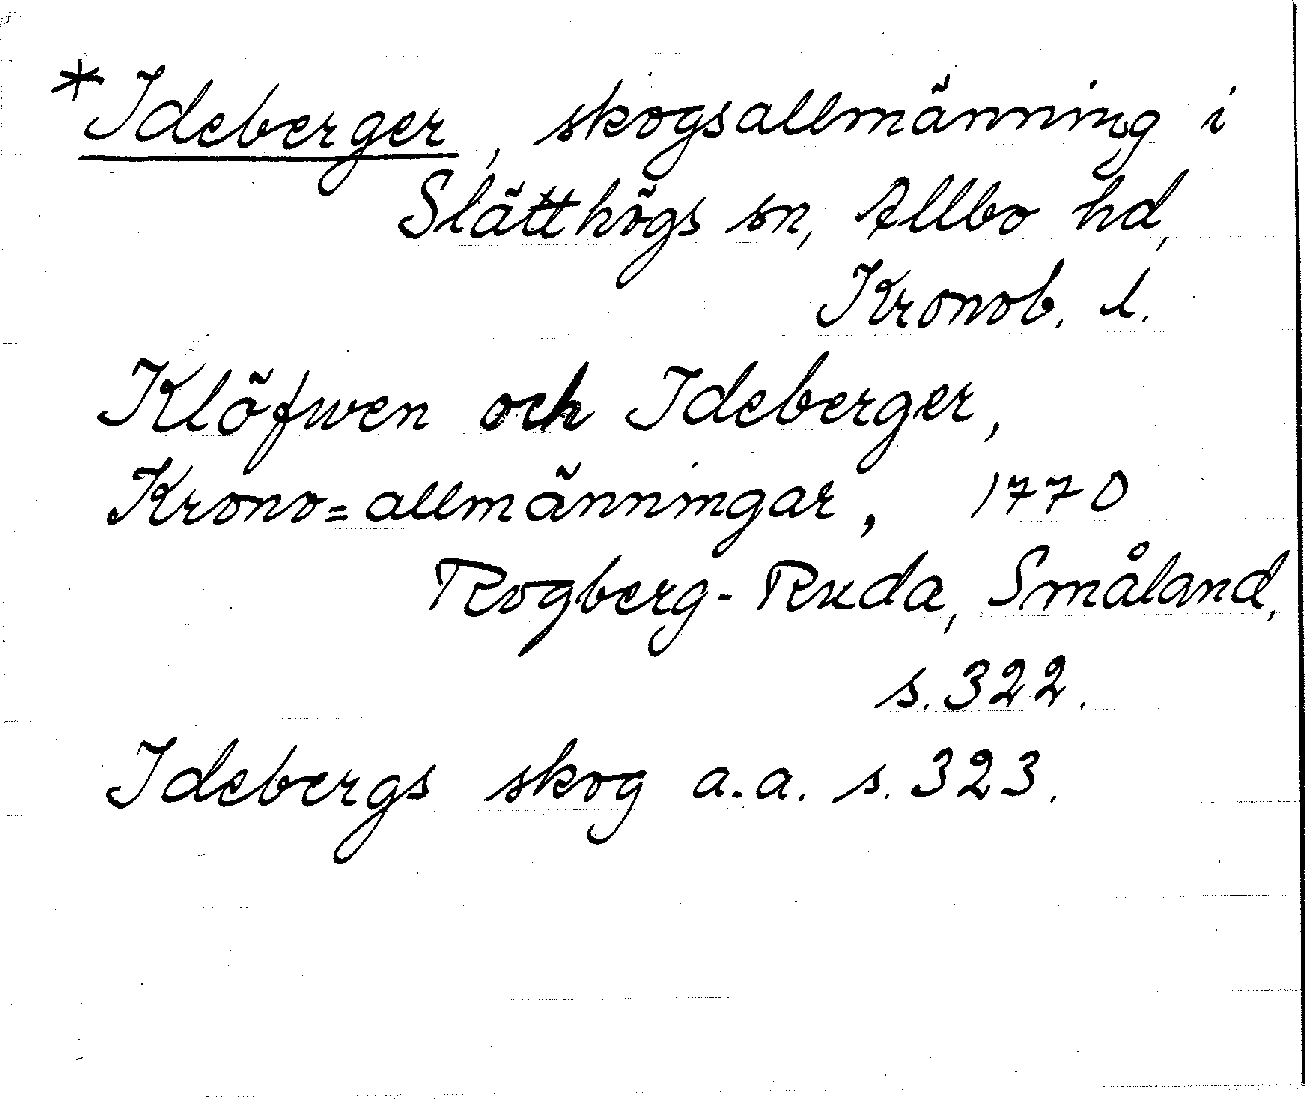 *Ideberger, skogsallmänning i
Slätthögs sn, Allbo hd,
Kronob. l.
Klöfwen och Ideberger,
Krono=allmänningar, 1770
Rogberg-Ruda, Småland,
s. 322.
Idebergs skog a.a. s. 323.